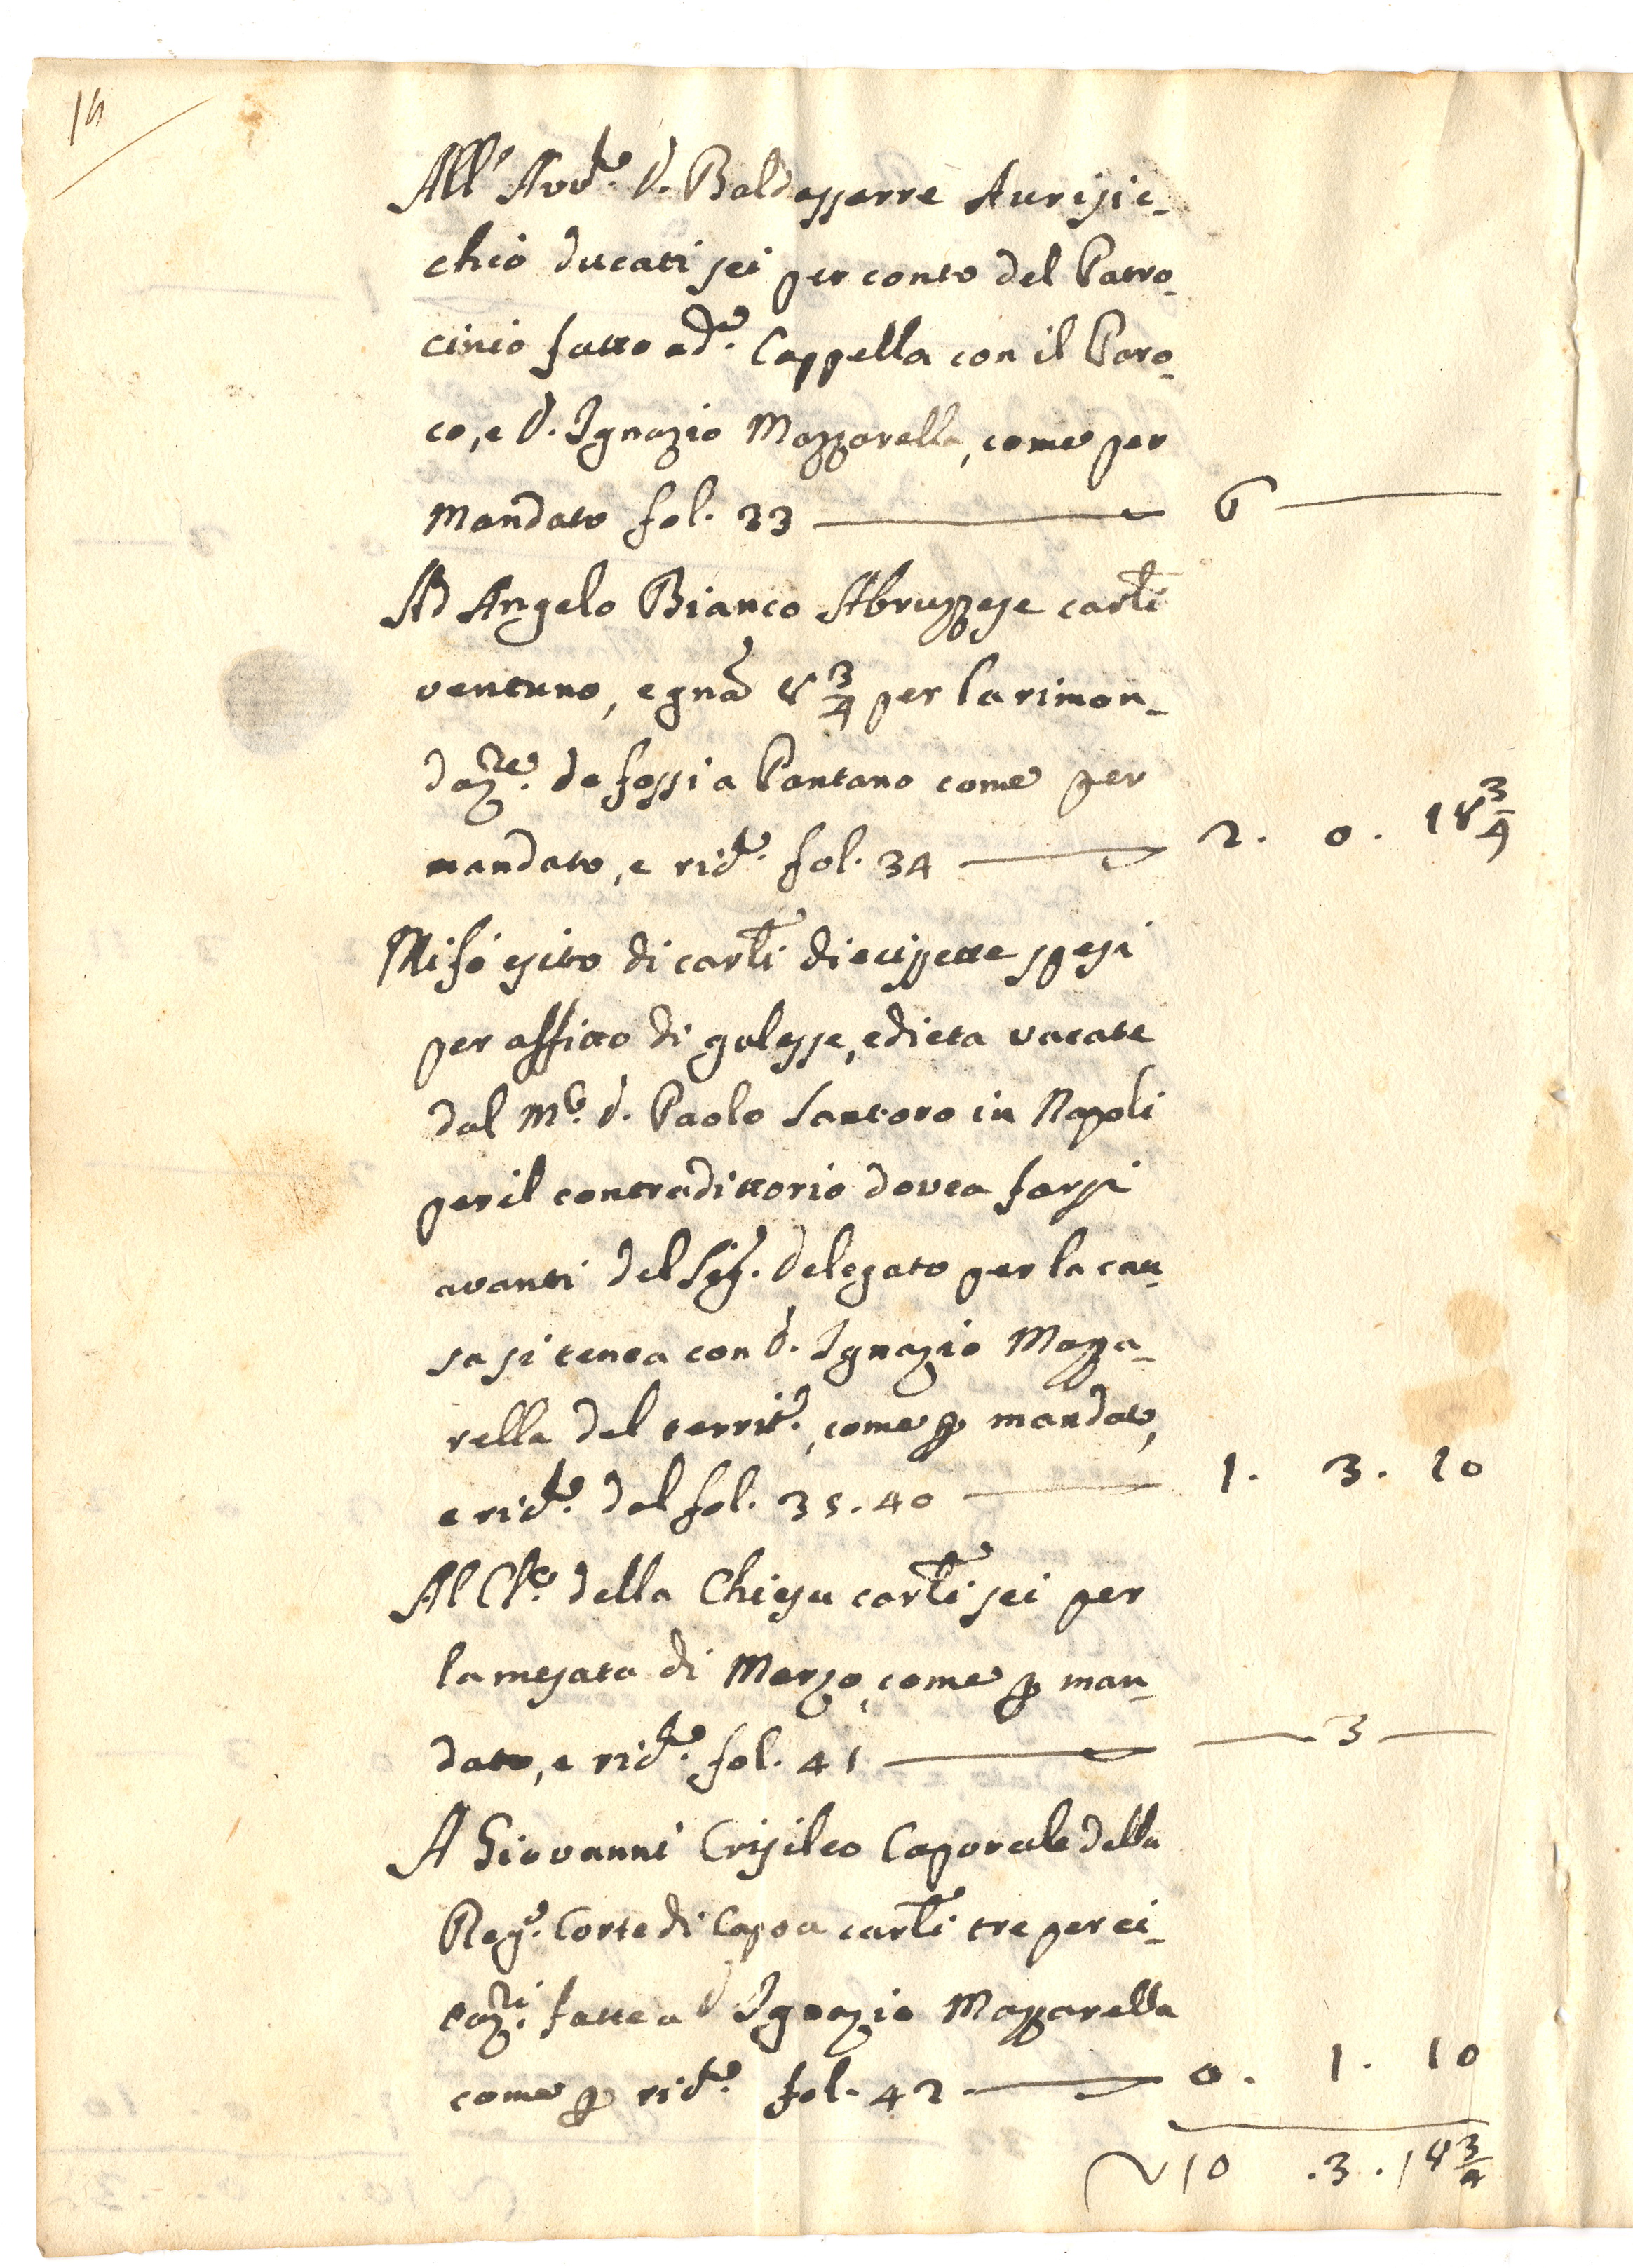 14
All' Avv.to D. Baldassarre Aurisic-
chio ducati sei per conto del Patro-
cinio fatto a d.a Cappella con il Paro-
co, e D. Ignazio Mazzarella, come per
mandato fol. 33 — 6 —
Ad Angelo Bianco Abruzzese carli
ventuno, e gna 8 3/4 per la rimon-
daz.ne de fossi a Pantano come per
mandato, e ric.to fol. 34 — 2. 0. 18 3/4
Mi fò esito di carli diecissette spesi
per affitto di galesse, e dieta vacate
dal M.co D. Paolo Santoro in Napoli
per il contradittorio dovea farsi
avanti del Sig. Delegato per la cau-
sa si tenea con D. Ignazio Mazza-
rella del territ.o, come p mandato,
e ric.to dal fol. 35. 40 — 1. 3. 10
Al Ch.co della Chiesa carli sei per
la mesata di Marzo, come p man-
dato, e ric.to fol. 41 — — 3 —
A Giovanni Crisileo Caporale della
Reg.a Corte di Capoa carli tre per ci-
taz.ni fatte a D Ignazio Mazzarella
come p ric.to fol. 42 — 0. 1. 10
10 . 3 . 18 3/4